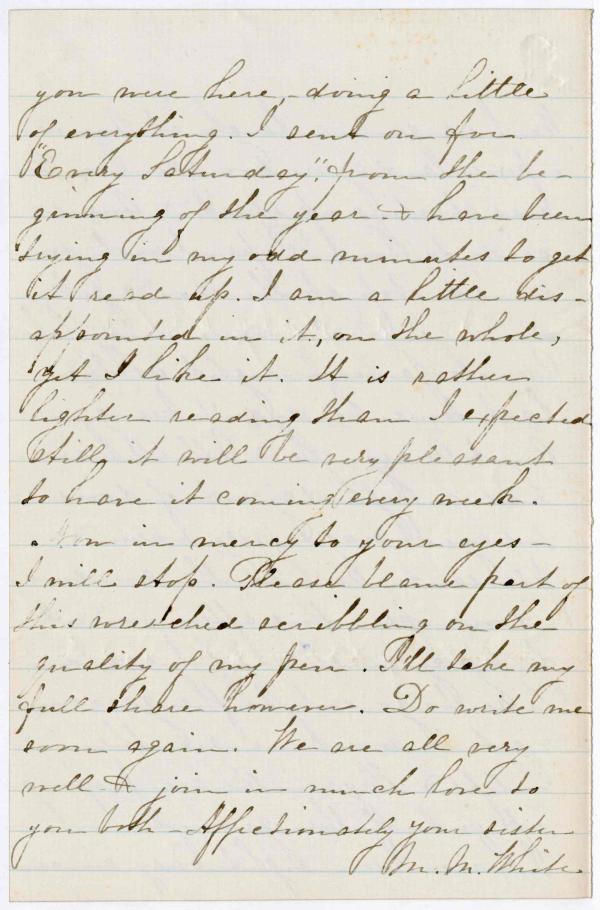 you were here, - doing a little
of everything. I sent on for
"Every Saturday", from the be-
ginning of the year & have been
trying in my odd minutes to get
it read up. I am a little dis-
appointed in it, on the whole,
yet I like it. It is rather
lighter reading than I expected
still, it will be very pleasant
to have it coming every week.
Now in mercy to your eyes -
I will stop. Please blame part of
this wretched scribbling on the
quality of my pen. I'll take my
full share however. Do write me
soon again. We are all very
well & join in much love to
you both - Affectionately your sister
M. M. White